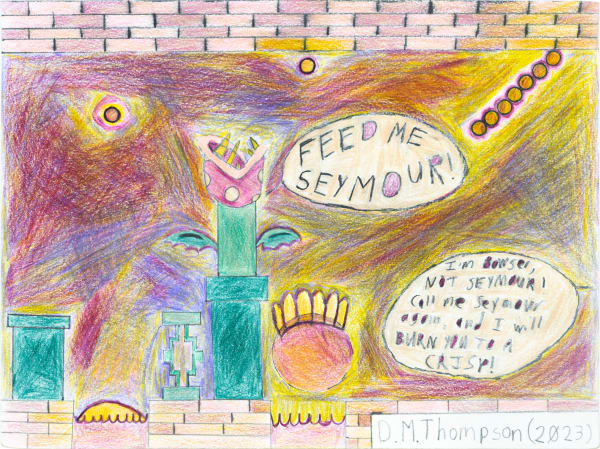 FEED ME
SEYMOUR!
I'm Bowser,
NOT SEYMOUR!
Call me Seymour
again, and I will
BURN YOU TO A
CRISP!
D.M.Thompson(2023)